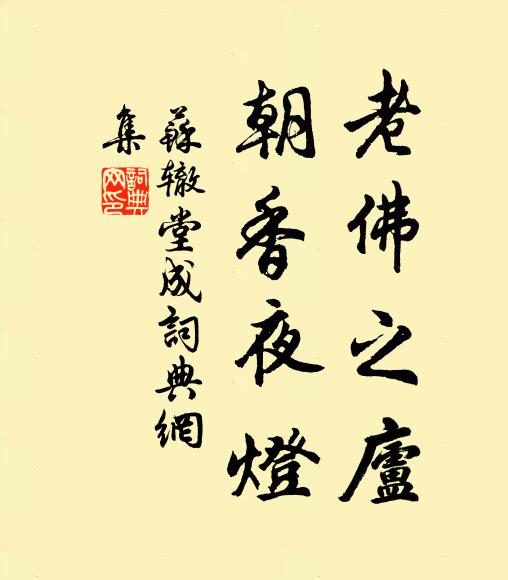 老佛之廬
朝香夜燈
蘇辙堂成詞典網
集
詞典
网印